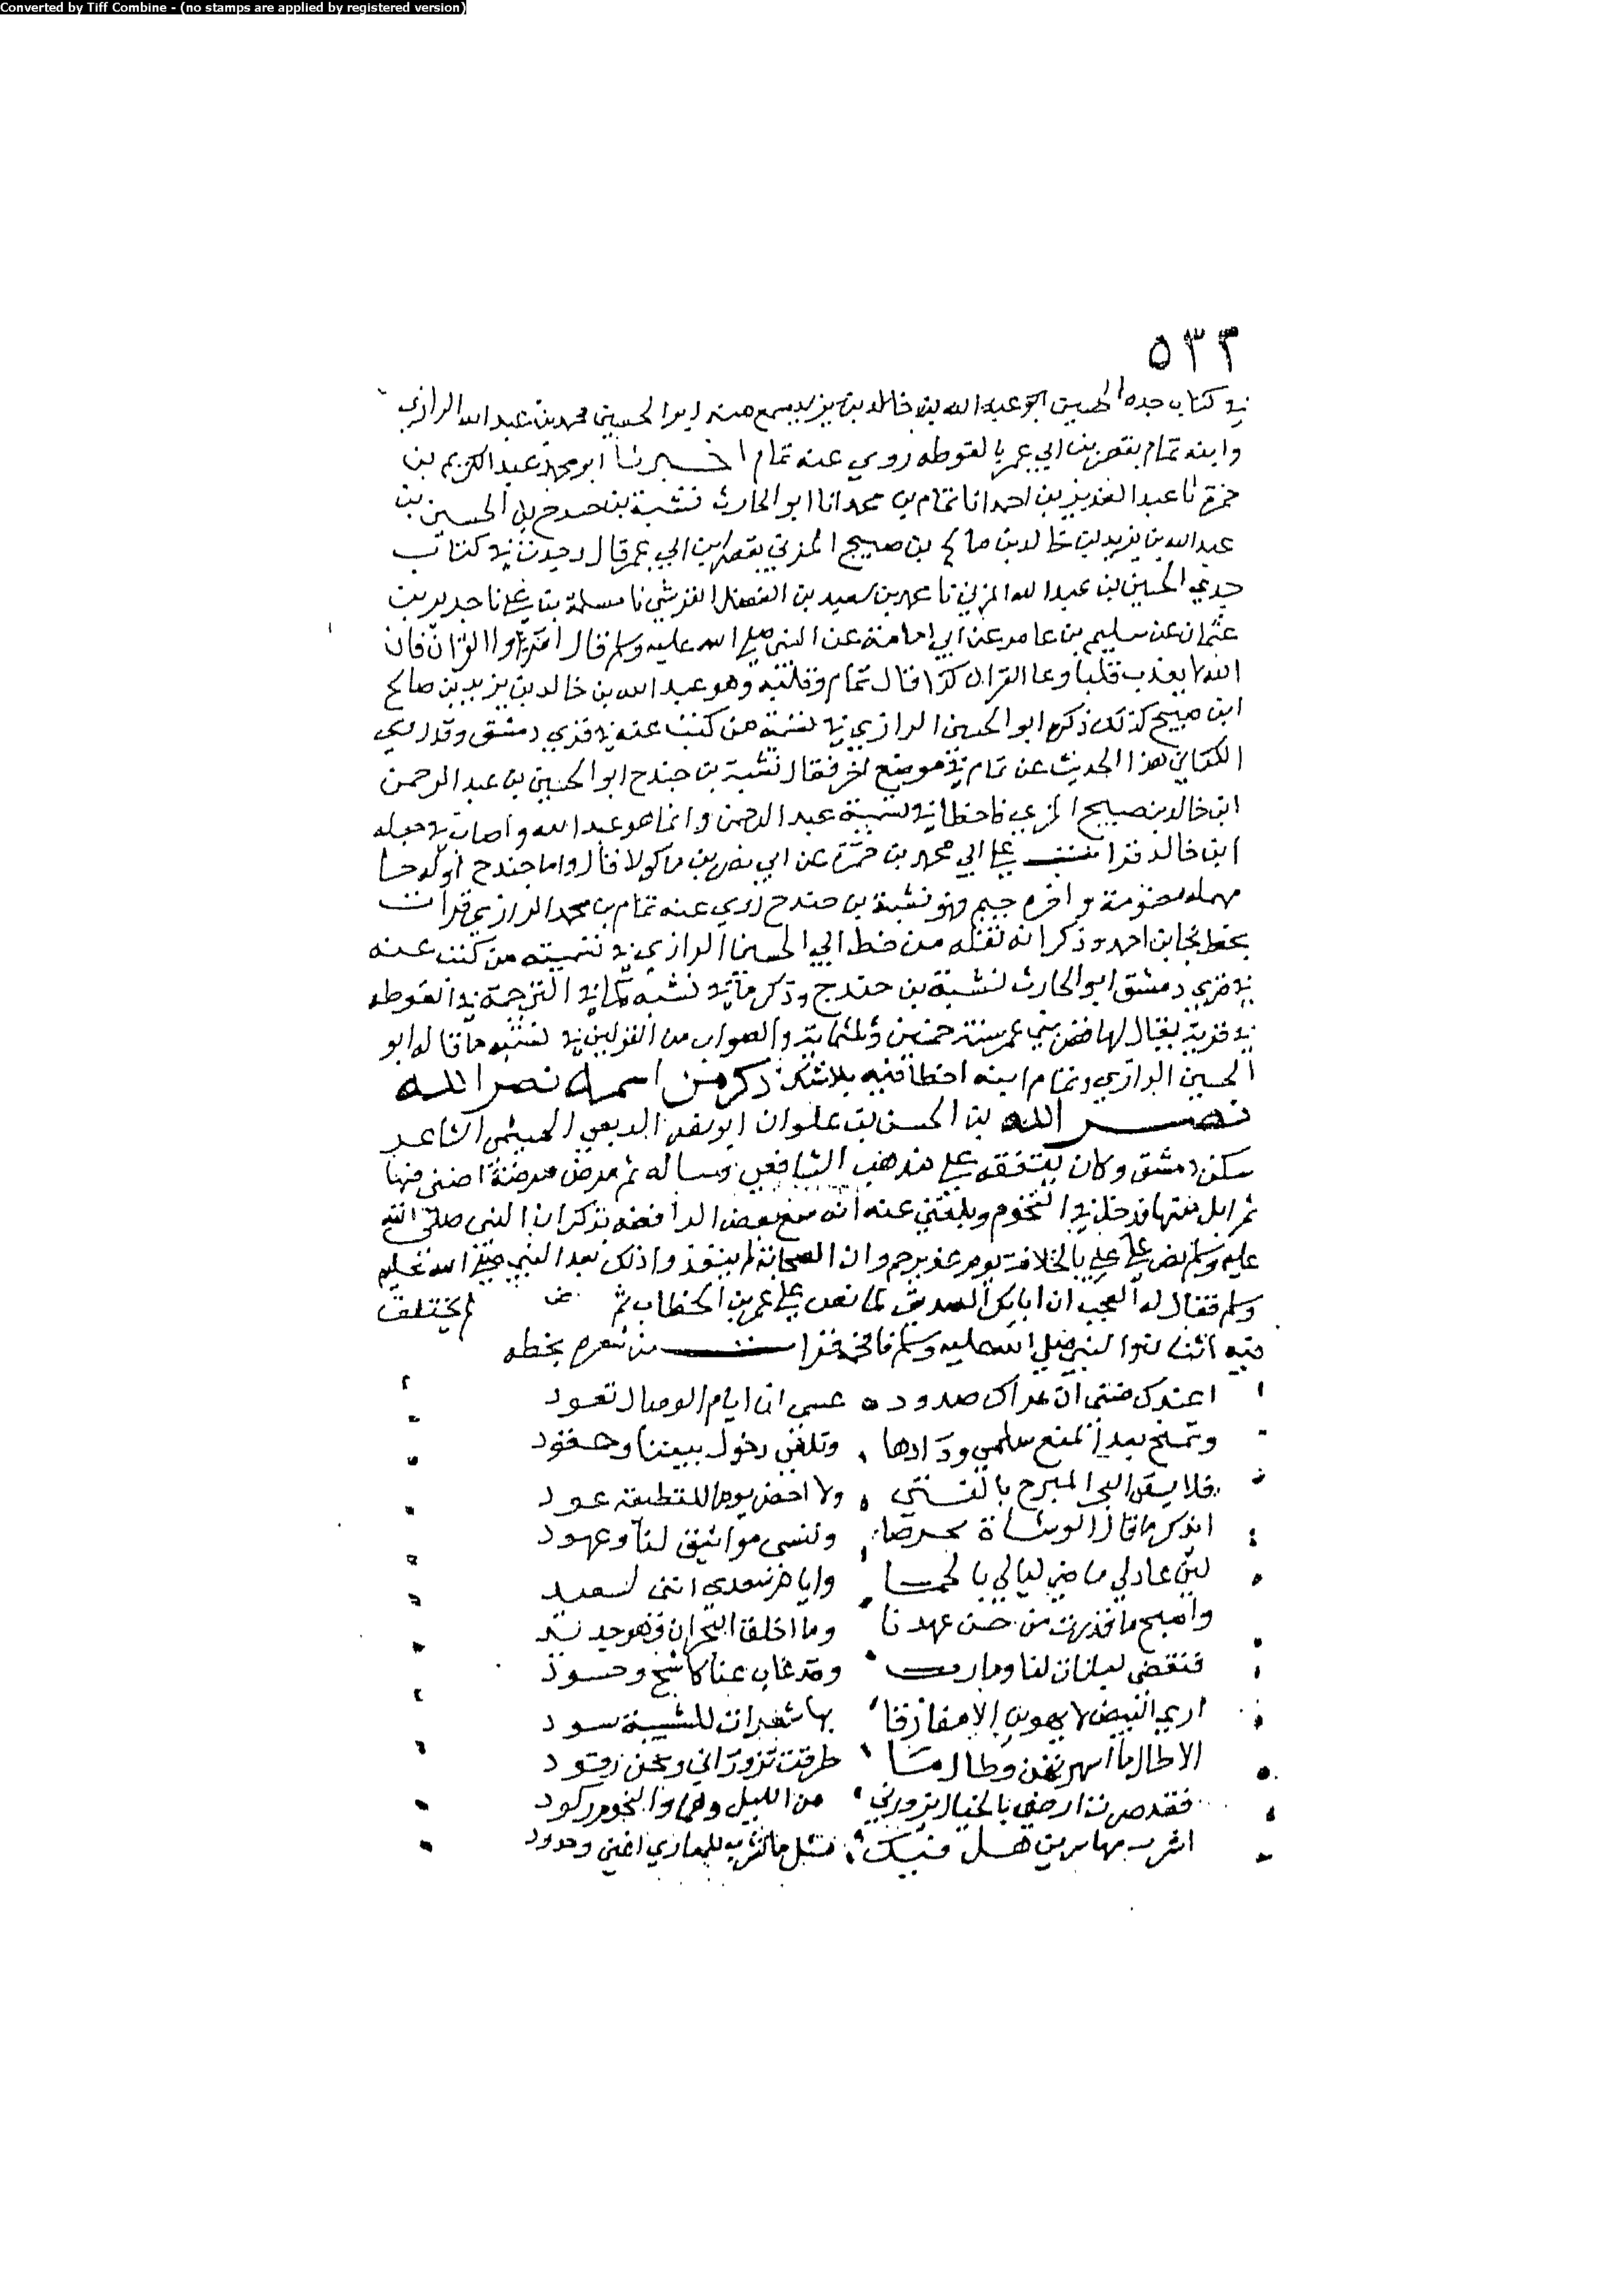 Converted by Tiff Combine - (no stamps are applied by registered version)
٥٣٣
في كتاب جده الحسين ابو عبد الله بن خالد بن يزيد سمع منه ابو الحسين محمد بن عبد الله الرازي
وابنه تمام بقصر بن ابي عمر بالغوطه روي عنه تمام اخبرنا ابو محمد عبد الكريم بن
حمزة نا عبد العزيز بن احمد انا تمام بن محمد انا ابو الحارث نشبة بن حندج بن الحسين بن
عبد الله بن يزيد بن خالد بن صالح بن صبيح المزني بقصر بن ابي عمر قال وجدت في كتاب
جدي الحسين بن عبد الله المزني نا محمد بن سعيد بن الفضل القرشي نا مسلمة بن علي نا حرير بن
عثمان عن سليم بن عامر عن ابي امامة عن النبي صلى الله عليه وسلم قال اقرؤا القران فان
الله لا يعذب قلبا وعا القران كذا قال تمام وهو عبد الله بن خالد بن يزيد بن صالح
ابن صبيح كذلك ذكره ابو الحسين الرازي في تسمية من كتب عنه في قري دمشق وقد روي
الكتاني هذا الحديث عن تمام في موضع اخر فقال نشبة بن جندح ابو الحسين بن عبد الرحمن
ابن خالد بن صبيح المزي فاخطا في تسمية عبد الرحمن وانما هو عبد الله واصاب في جعله
ابن خالد قرات علي ابي محمد بن حمزة عن ابي نصر بن ماكولا قال واما حندج اوله حا
مهمله مضمومة واخره جيم فهو نشبة بن حندج روي عنه تمام بن محمد الرازي قرات
بخط نجا بن احمد وذكر انه نقله من خط ابي الحسين الرازي في تسمية من كتب عنه
في قري دمشق ابو الحارث نشبة بن حندج وذكر في نسبه كما في الترجمة في الغوطه
في قرية يقال لها قصر بني عمر سنة خمسين وثلثماية والصواب من القولين في نسبه ما قاله ابو
الحسين الرازي وتمام ابنه اخطا فيه بلا شك ذكر من اسمه نصر الله
نصر الله بن الحسن بن علوان ابو نصر الربعي الهيتي الشاعر
سكن دمشق وكان يتفقه علي مذهب الشافعي وساله ثم مرض مرضة اضني فيها
ثم ابل منها وبلغني عنه انه سمع بعض الرافضه يذكر ان النبي صلى الله
عليه وسلم نص علي علي بالخلافة يوم غدير خم وان الصحابة لم ينفذوا ذلك بعد النبي صلى الله عليه
وسلم فقال له العجب ان ابا بكر الصديق لما نص علي عمر بن الخطاب لم يختلف
فيه اثنان والنبي صلى الله عليه وسلم قرات من شعره بخطه
اعندك مني ان عداك صدود عسي ان ايام الوصال تعود
وتمنح بعد المنع سلمي ودادها وتلقي دخول بيننا وحقود
ولا اخضر يوما للقطيعة عود
اتذكر ما قال الوشاة تحرصا وتنسى مواثيق لنا وعهود
لئن عاد لي ماضي ليالي بالحما وايام سعدي انني لسعيد
واصبح ما قد رث من حسن عهدنا وما اخلق الهجران وهو جديد
فنقضي لبانات لنا ومارب وقد غاب عنا كاشح وحسود
اري البيض لا يهوين الا مفارقا بها شعرات للشبيبة سود
الا طالما اسهرتهن وطالما طرقت تزوراني ونحن رقود
فقد صرت ارضي بالخيال يزورني من الليل وهنا والنجوم ركود